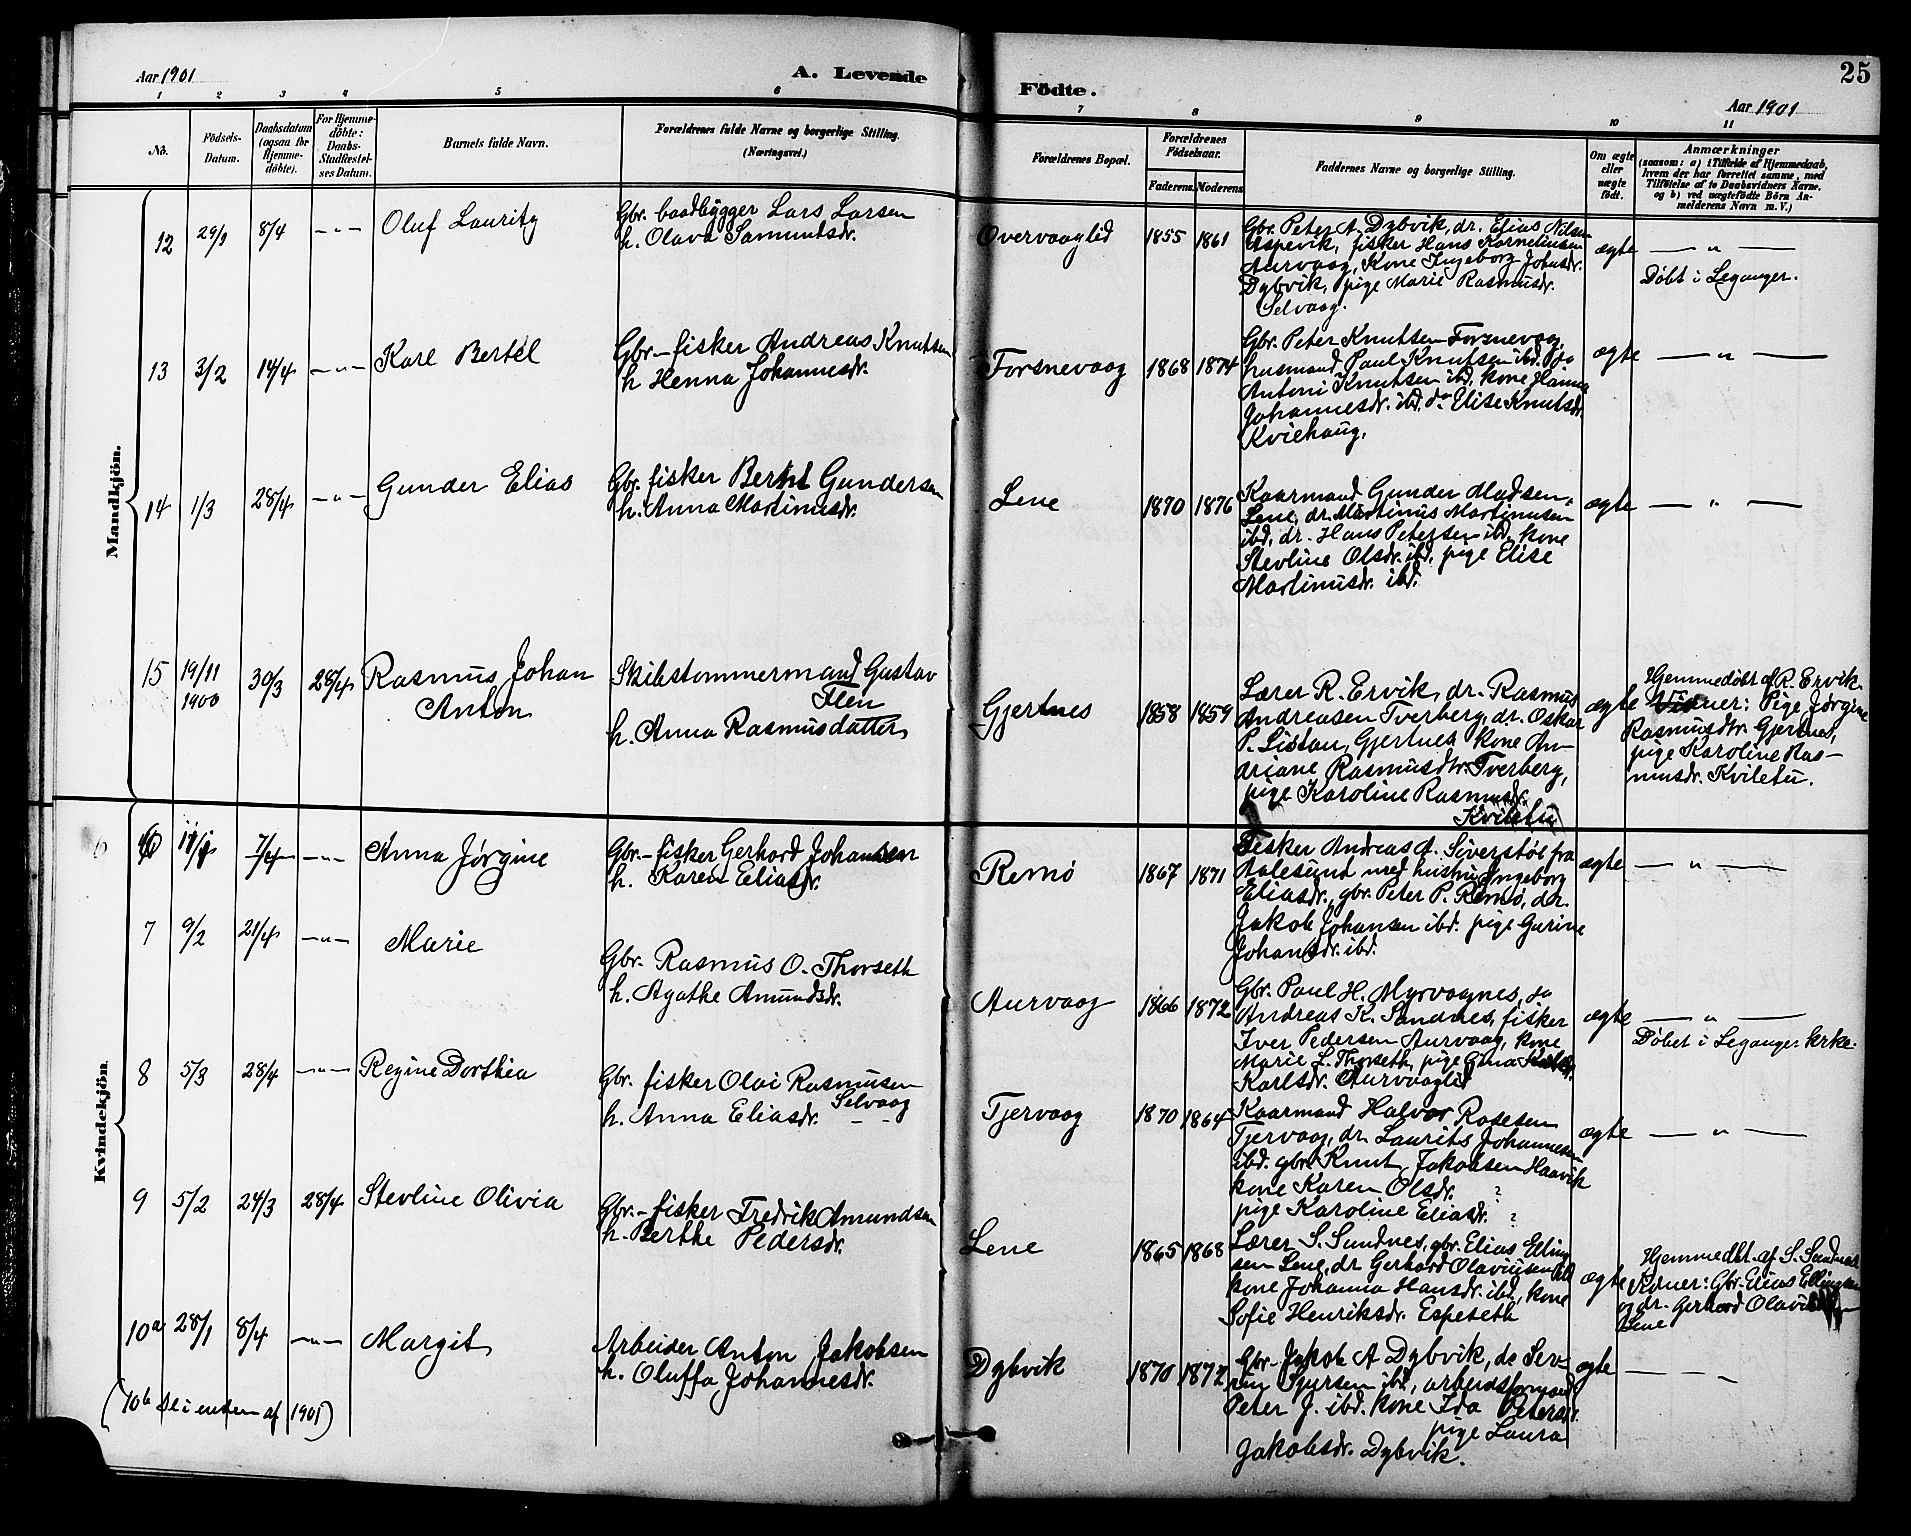 Aar 1901
A. Levende
Födte.
25
Aar 1901
1 2 3 4 5 6 7 8 9 10 11
No.
Födsels-
Datum.
Daabsdatum
(ogsaa for
Hjemme-
döbte).
For Hjemme-
döbte:
Daabs-
Stadfæstel-
ses Datum.
Barnets fulde Navn.
Forældrenes fulde Navne og borgerlige Stilling.
(Næringsvei.)
Forældrenes Bopæl.
Forældrenes
Födselsaar.
Faderens. Moderens.
Faddernes Navne og borgerlige Stilling.
Om ægte
eller
uægte
födt.
Anmærkninger
(saasom: a) i Tilfælde af Hjemmedaab,
hvem der har forrettet samme, med
Tilföielse af to Daabsvidners Navne.
og b) ved uægtefödte Börn An-
melderens Navn m. V.)
Mandkjön.
12 29/3 8/4 - " - Oluf Lauritz
Gbr. baadbygger Lars Larsen
h. Olava Samundsdr.
Overvaaglid 1855 1861
Gbr. Peter A. Dybvik, dr. Elias Nilsen
Espevik, fisker Hans Korneliusen
Aurvaag, Kone Ingeborg Johnsdr.
Dybvik, pige Marie Rasmusdr.
Selvaag.
ægte — " —
Döbt i Leganger.
13 3/2 14/4 - " - Karl Bertel
Gbr.-fisker Andreas Knutsen
h Henna Johannesdr.
Forsnevaag 1868 1874
Gbr. Peter Knutsen Forsnevaag,
husmand Paul Knutsen ibd. do
Antoni Knutsen ibd, kone Hanna
Johannesdr. ibd, do Elise Knutsdr.
Kviehaug.
ægte — " —
14 1/3 28/4 - " - Gunder Elias
Gbr. fisker Bernt Gundersen
h. Anna Martinusdr.
Lene 1870 1876
Kaarmand Gunder Madsen,
Lene, dr. Martinus Martinusen
ibd, dr. Hans Petersen ibd, kone
Stevline Olsdr. ibd, pige Elise
Martinusdr. ibd.
ægte — " —
15 19/11
1900 30/3 28/4 Rasmus Johan
Anton
Skibstømmermand Gustav
Flen
h. Anna Rasmusdatter
Gjertnes 1858 1859
Lærer R. Ervik, dr. Rasmus
Andreasen Tverberg, dr. Oskar
P. Listau, Gjertnes kone An-
driane Rasmusdtr. Tverberg,
pige Karoline Rasmusdr.
Kviletu
ægte
Hjemmedøbt af R. Ervik.
Vidner: Pige Jørgine
Rasmusdtr. Gjertnes,
pige Karoline Ras-
musdr. Kviletu.
Kvindekjön.
6 7/4 - " - Anna Jørgine
Gbr.-fisker Gerhard Johansen
h. Karen Eliasdr.
Remø 1867 1871
Fisker Andreas A. Siverstøl fra
Aalesund med hustru Ingeborg
Eliasdr., gbr. Peter P. Remø, dr.
Jakob Johansen ibd. pige Gurine
Johansdr. ibd.
ægte — " —
7 9/2 21/4 - " - Marie
Gbr. Rasmus O. Thorseth
h. Agathe Amundsdr.
Aurvaag 1866 1872
Gbr. Paul H. Myrvaagnes, do
Andreas K. Sandnes, fisker
Iver Pedersen Aurvaag, kone
Marie L. Thorseth, pige Gina
Karlsdr. Aurvaaglid
ægte — " —
Döbet i Leganger kirke.
8 5/3 28/4 - " - Regine Dorthea
Gbr. fisker Olai Rasmusen
Selvaag
h. Anna Eliasdr. - -
Tjervaag 1870 1864
Kaarmand Halvor Rasesen
Tjervaag, dr. Laurits Johannesen
ibd. gbr. Knut Jakobsen Haavik
kone Karen Olsdr. ?
pige Karoline Eliasdr. ?
ægte — " —
9 5/2 24/3 28/4 Stevline Olivia
Gbr.-fisker Fredrik Amundsen
h. Berthe Pedersdr.
Lene 1865 1868
Lærer S. Sundnes, gbr. Elias Elling
sen Lene, dr Gerhard Olaviusen ibd
kone Johanna Hansdr. ibd, kone
Sofie Henriksdr. Espeseth
ægte
Hjemmedbt. af S. Sandnes
Vidner: Gbr. Elias Ellingsen
og dr. Gerhard
Lene
10a 28/1 8/4 - " - Margit
Arbeider Anton Jakobsen
h. Oluffa Johannesdr.
Dybvik 1870 1872
Gbr. Jakob A Dybvik, do Sev-
rin Sjursen ibd, arbeidsformand
Peter J. ibd. kone Ida Petersdr.
pige Laura
Jakobsdr. Dybvik.
ægte — - -
(10b se i enden af 1901)